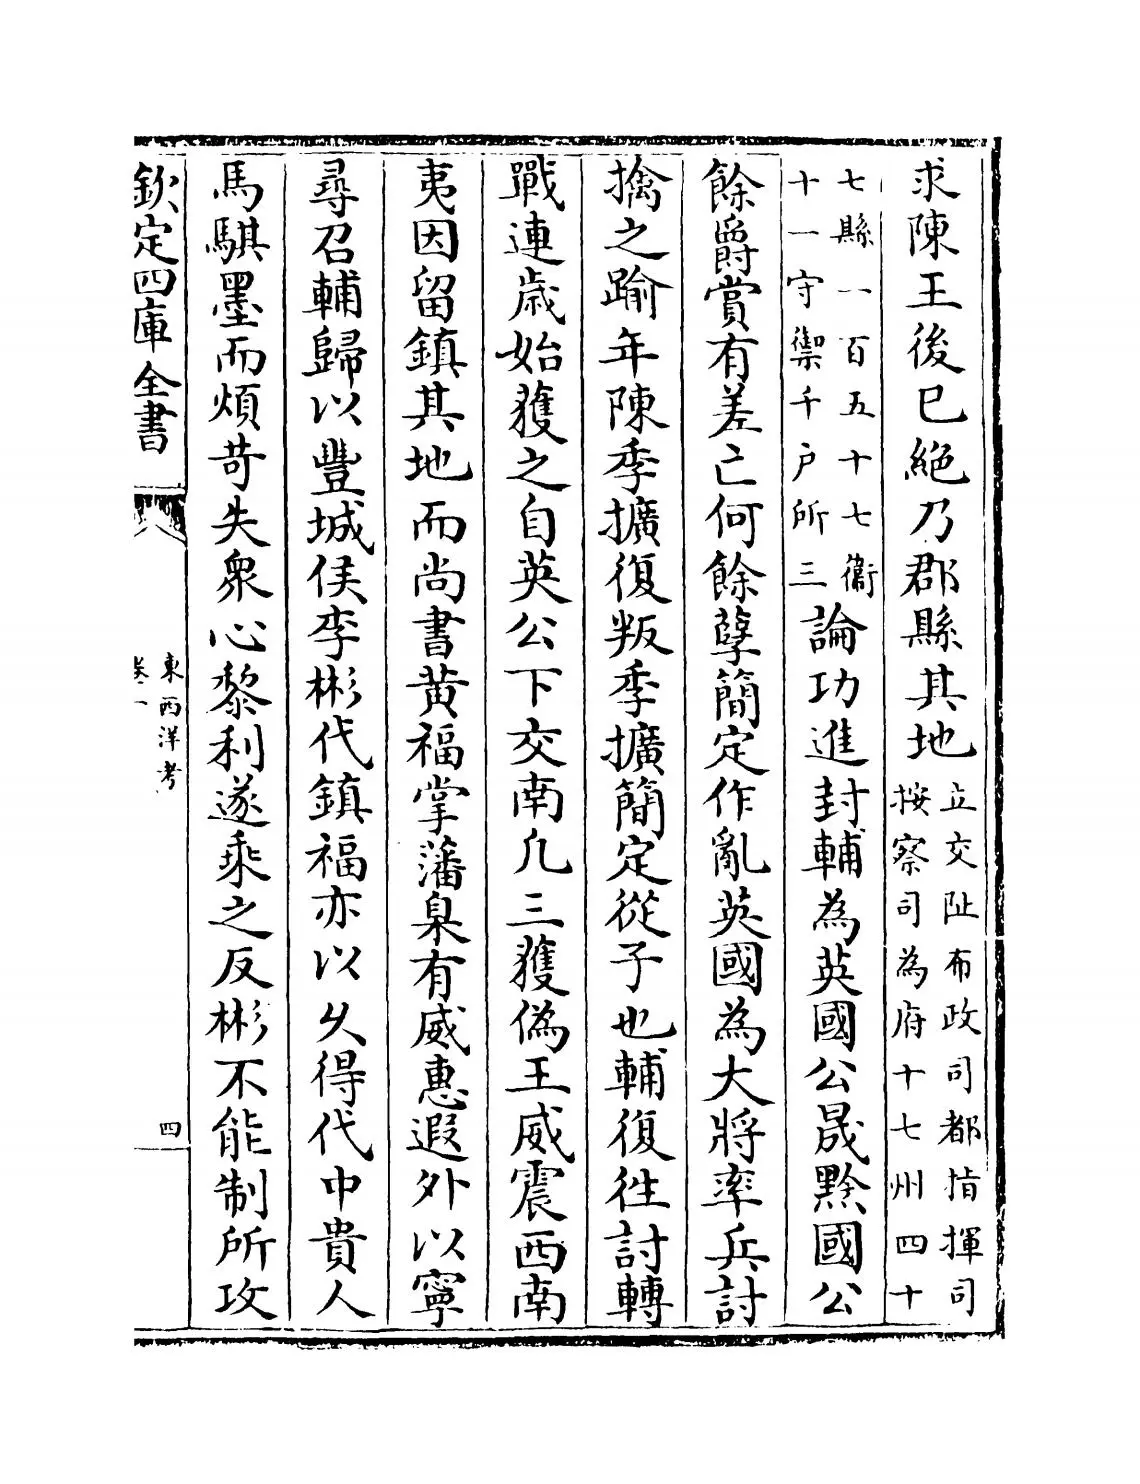 求陳王後已絕乃郡縣其地立交阯布政司都指揮司按察司為府十七州四十
七縣一百五十七衞十一守禦千户所三論功進封輔為英國公晟黔國公
餘爵賞有差亡何餘孽簡定作亂英國為大將率兵討
擒之踰年陳季擴復叛季擴簡定從子也輔復徃討轉
戰連歲始獲之自英公下交南凡三獲偽王威震西南
夷因留鎮其地而尚書黄福掌藩臬有威惠遐外以寧
尋召輔歸以豐城侯李彬代鎮福亦以久得代中貴人
馬騏墨而煩苛失衆心黎利遂乘之反彬不能制所攻
欽定四庫全書
東西洋考
卷一
四